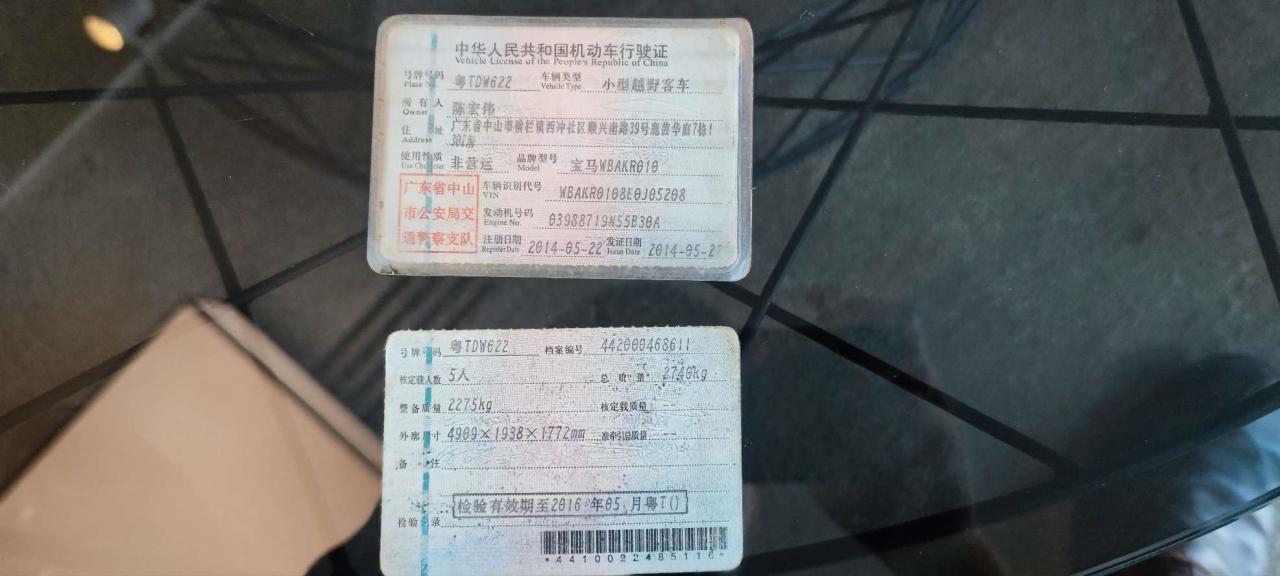 中华人民共和国机动车行驶证
Vehicle License of the People's Republic of China
号牌号码 Plate No. 粤TDW622 车辆类型 Vehicle Type 小型越野客车
所有人 Owner 陈宏伟
住址 Address 广东省中山市横栏镇西冲社区顺兴南路39号 华庭7栋1
302房
使用性质 Use Character 非营运 品牌型号 Model 宝马WBAKR010
车辆识别代号 VIN WBAKR0108E0J05208
发动机号码 Engine No. 03988719N55B30A
注册日期 Register Date 2014-05-22 发证日期 Issue Date 2014-05-2
广东省中山
市公安局交
通警察支队
号牌号码 粤TDW622 档案编号 442000468611
核定载人数 5人 总质量 2740kg
整备质量 2275kg 核定载质量 --
外廓尺寸 4909×1938×1772mm 准牵引总质量 --
备注
检验有效期至2016年05月粤T()
检验记录
*4410022485116*